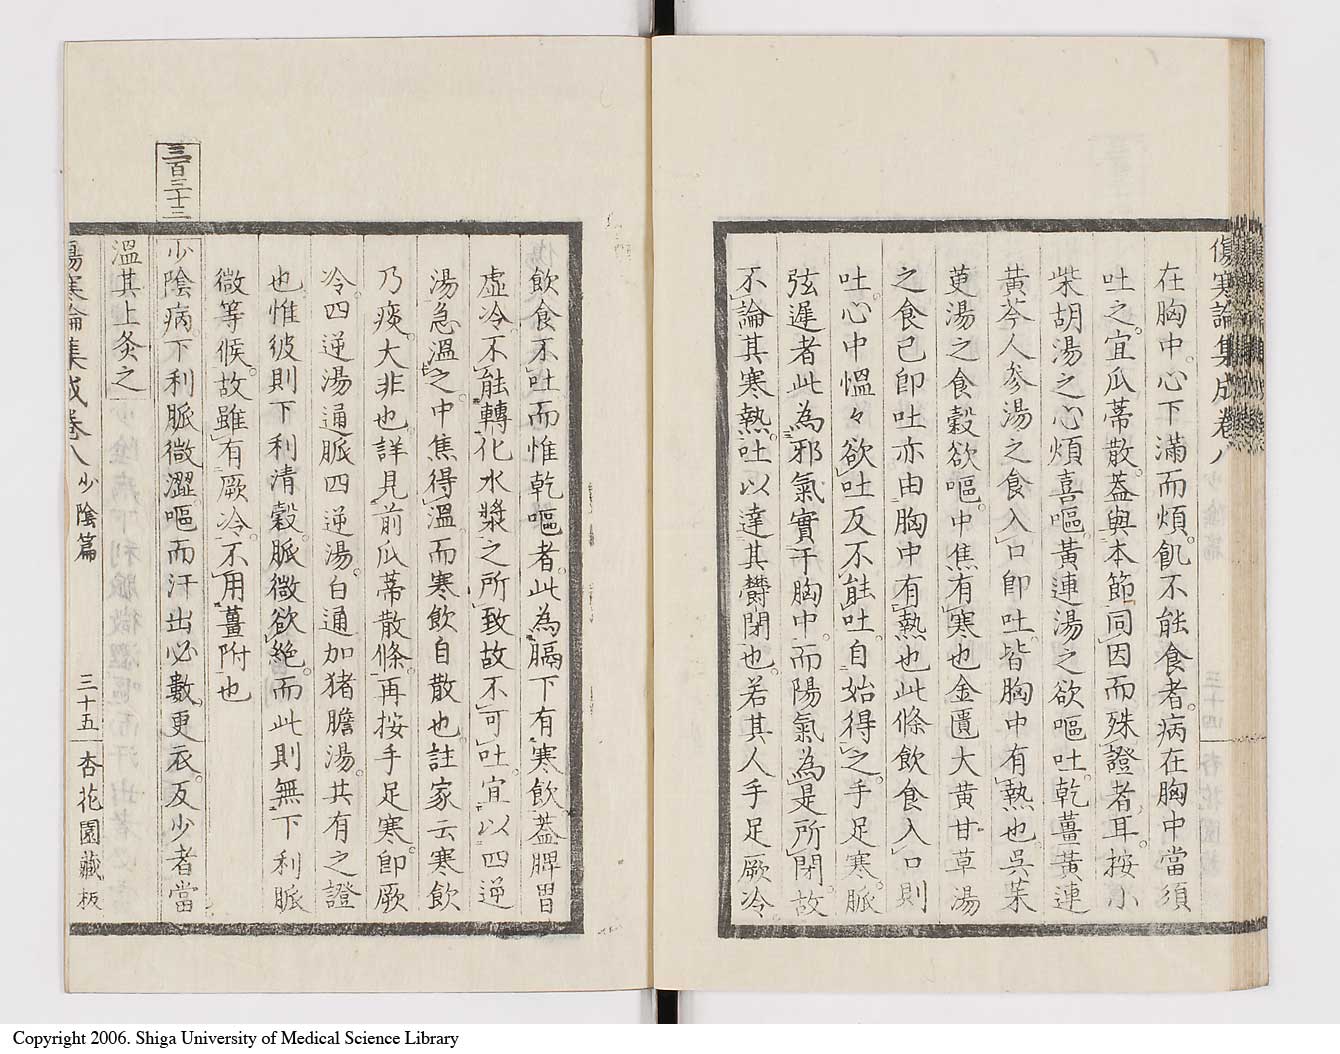 傷寒論集成卷八
在胸中。心下滿而煩。飢不能食者。病在胸中當須
吐之。宜瓜蒂散。蓋與本節同。因而殊證者耳。按小
柴胡湯之心煩喜嘔。黃連湯之欲嘔吐。乾薑黃連
黃芩人參湯之食入口即吐。皆胸中有熱也。吳茱
萸湯之食穀欲嘔。中焦有寒也金匱大黃甘草湯
之食已即吐亦由胸中有熱也此條飲食入口則
吐。心中慍々欲吐反不能吐。自始得之。手足寒。脈
弦遲者此為邪氣實于胸中。而陽氣為是所閉。故
不論其寒熱。吐以達其欝閉也。若其人手足厥冷。
飲食不吐而惟乾嘔者。此為膈下有寒飲。蓋脾胃
虛冷。不能轉化水漿之所致故不可吐。宜以四逆
湯急溫之。中焦得溫而寒飲自散也。註家云寒飲
乃痰。大非也。詳見前瓜蒂散條。再按手足寒。即厥
冷。四逆湯通脈四逆湯。白通加猪膽湯。其有之證
也惟彼則下利清穀。脈微欲絕。而此則無下利脈
微等候。故雖有厥冷。不用薑附也
三百三十三
少陰病。下利脈微澀。嘔而汗出必數更衣。反少者當
溫其上灸之
傷寒論集成卷八 少陰篇 三十五 杏花園藏板
Copyright 2006. Shiga University of Medical Science Library